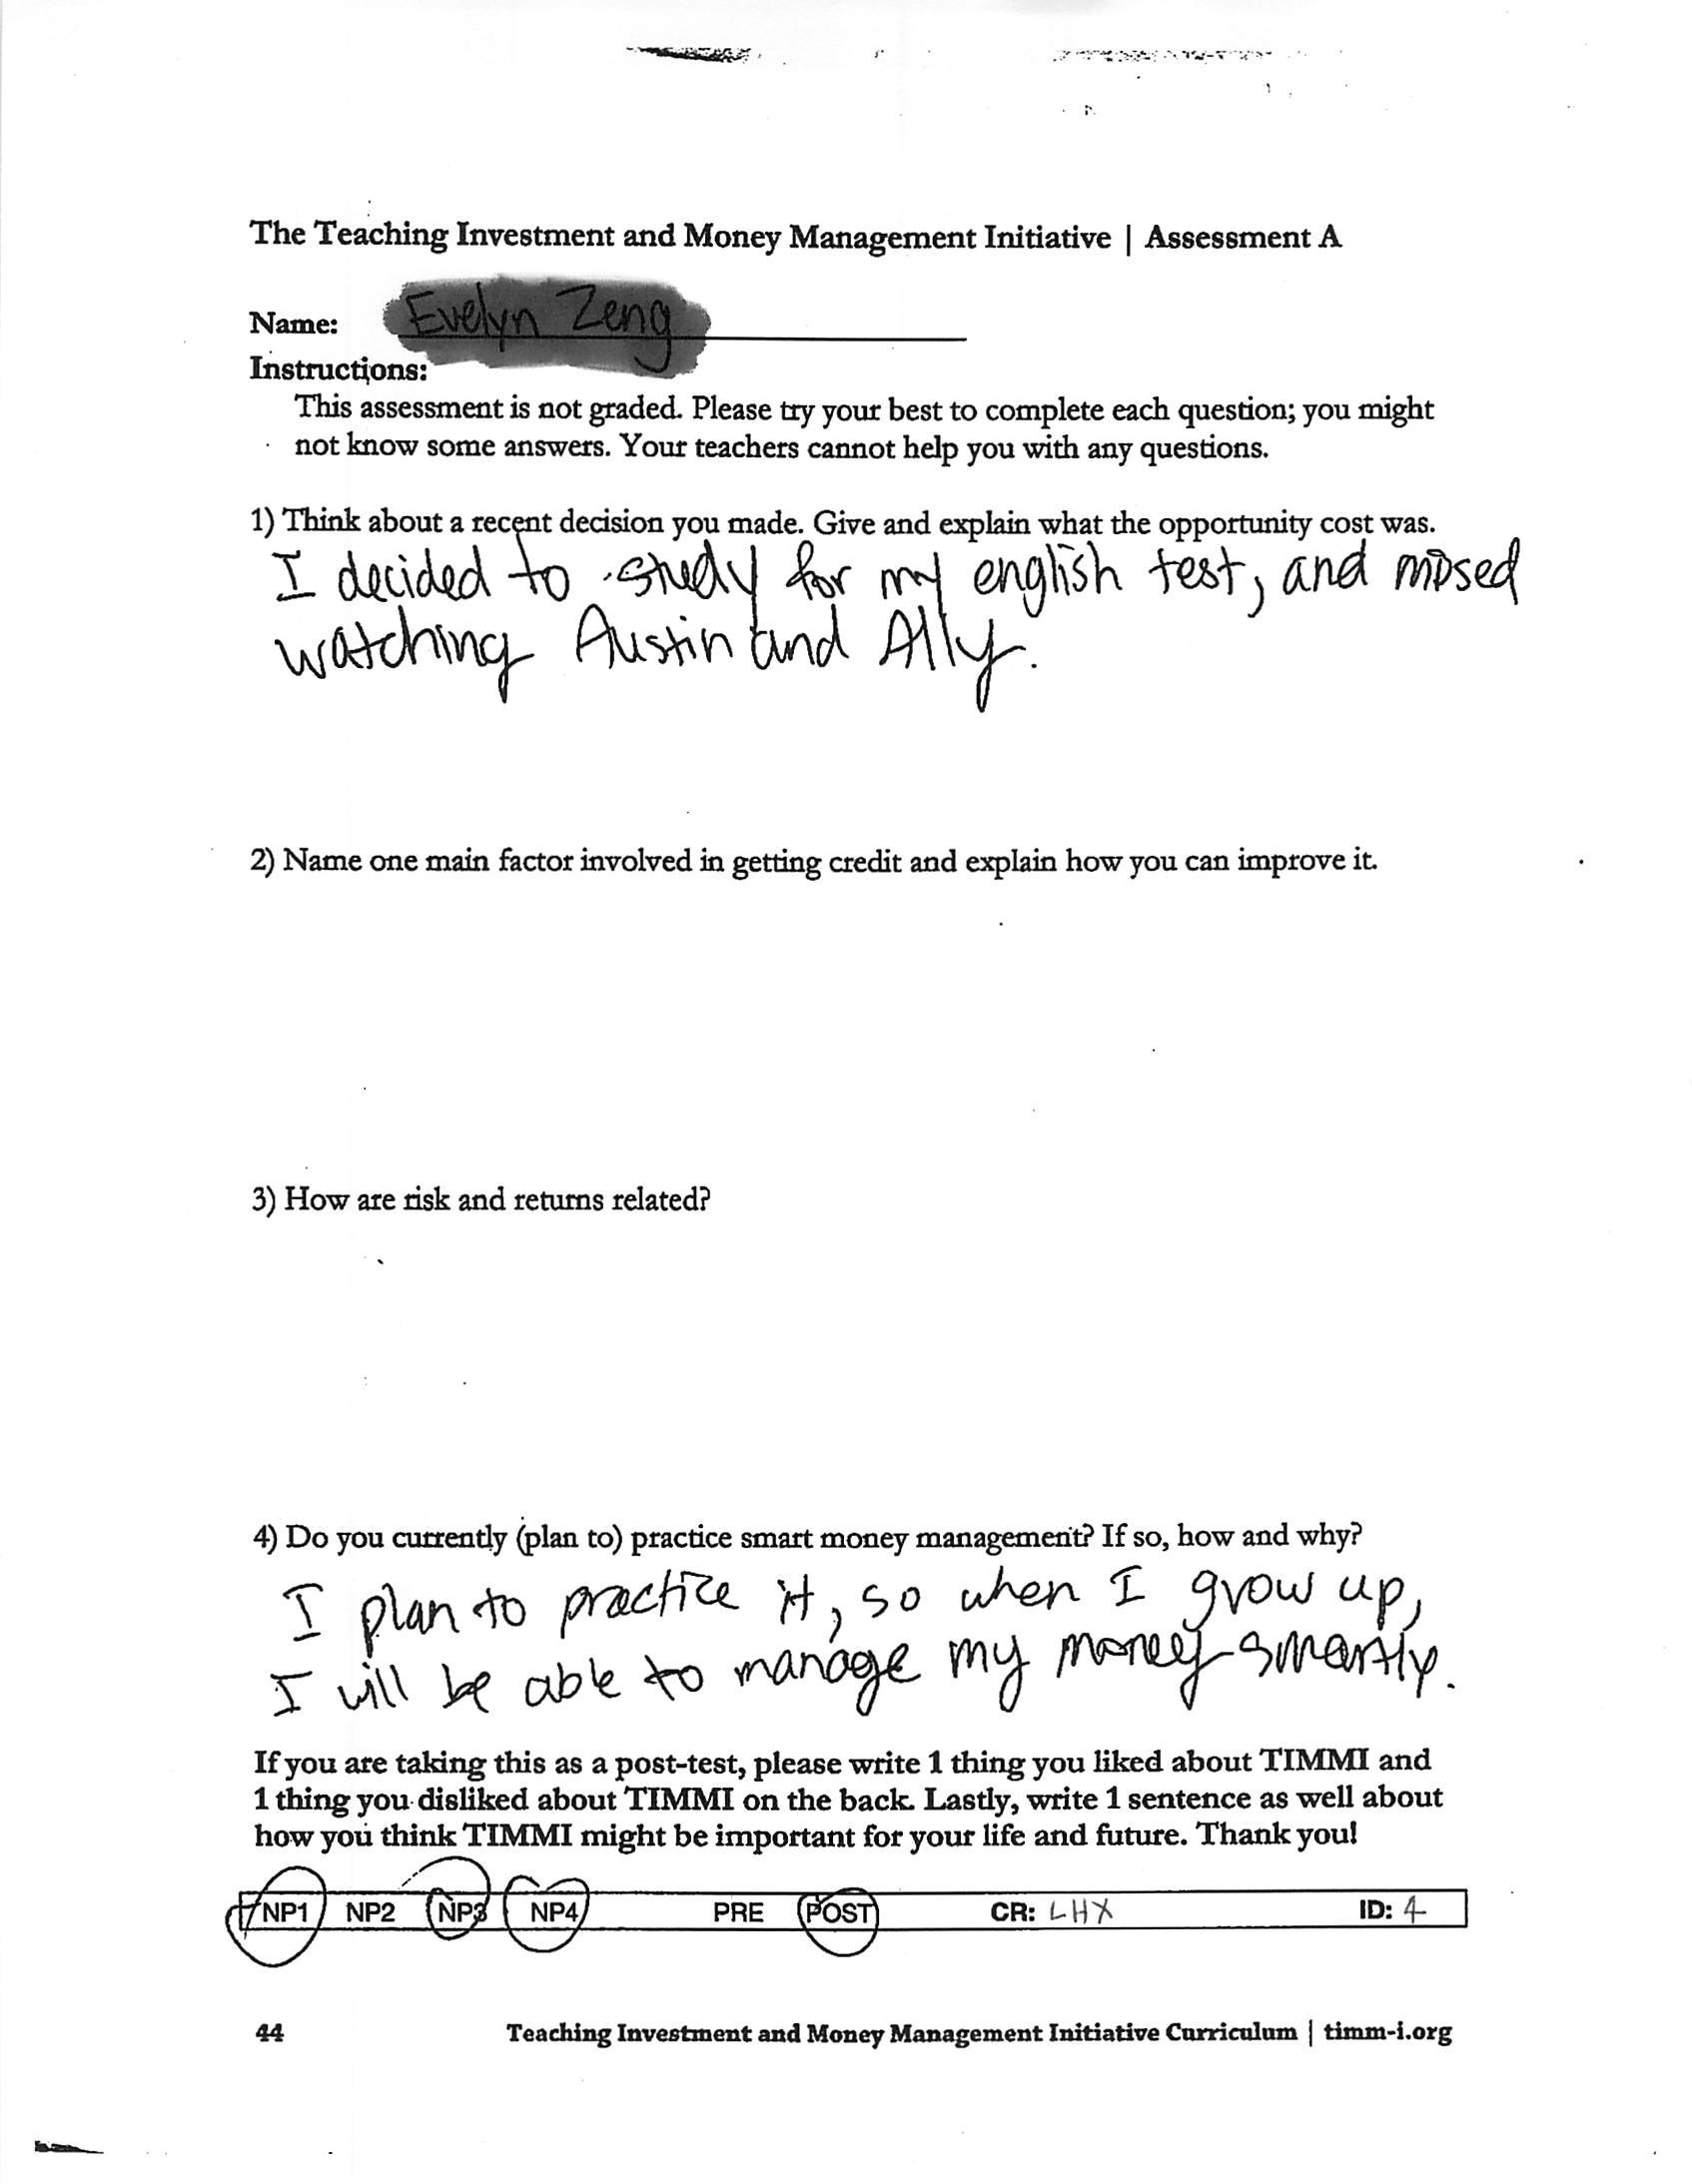 The Teaching Investment and Money Management Initiative | Assessment A
Name: Evelyn Zeng
Instructions:
This assessment is not graded. Please try your best to complete each question; you might
not know some answers. Your teachers cannot help you with any questions.
1) Think about a recent decision you made. Give and explain what the opportunity cost was.
I decided to study for my english test, and missed
watching Austin and Ally.
2) Name one main factor involved in getting credit and explain how you can improve it.
3) How are risk and returns related?
4) Do you currently (plan to) practice smart money management? If so, how and why?
I plan to practice it, so when I grow up,
I will be able to manage my money smartly.
If you are taking this as a post-test, please write 1 thing you liked about TIMMI and
1 thing you disliked about TIMMI on the back. Lastly, write 1 sentence as well about
how you think TIMMI might be important for your life and future. Thank you!
NP1 NP2 NP3 NP4 PRE POST CR: LHX ID: 4
44 Teaching Investment and Money Management Initiative Curriculum | timm-i.org